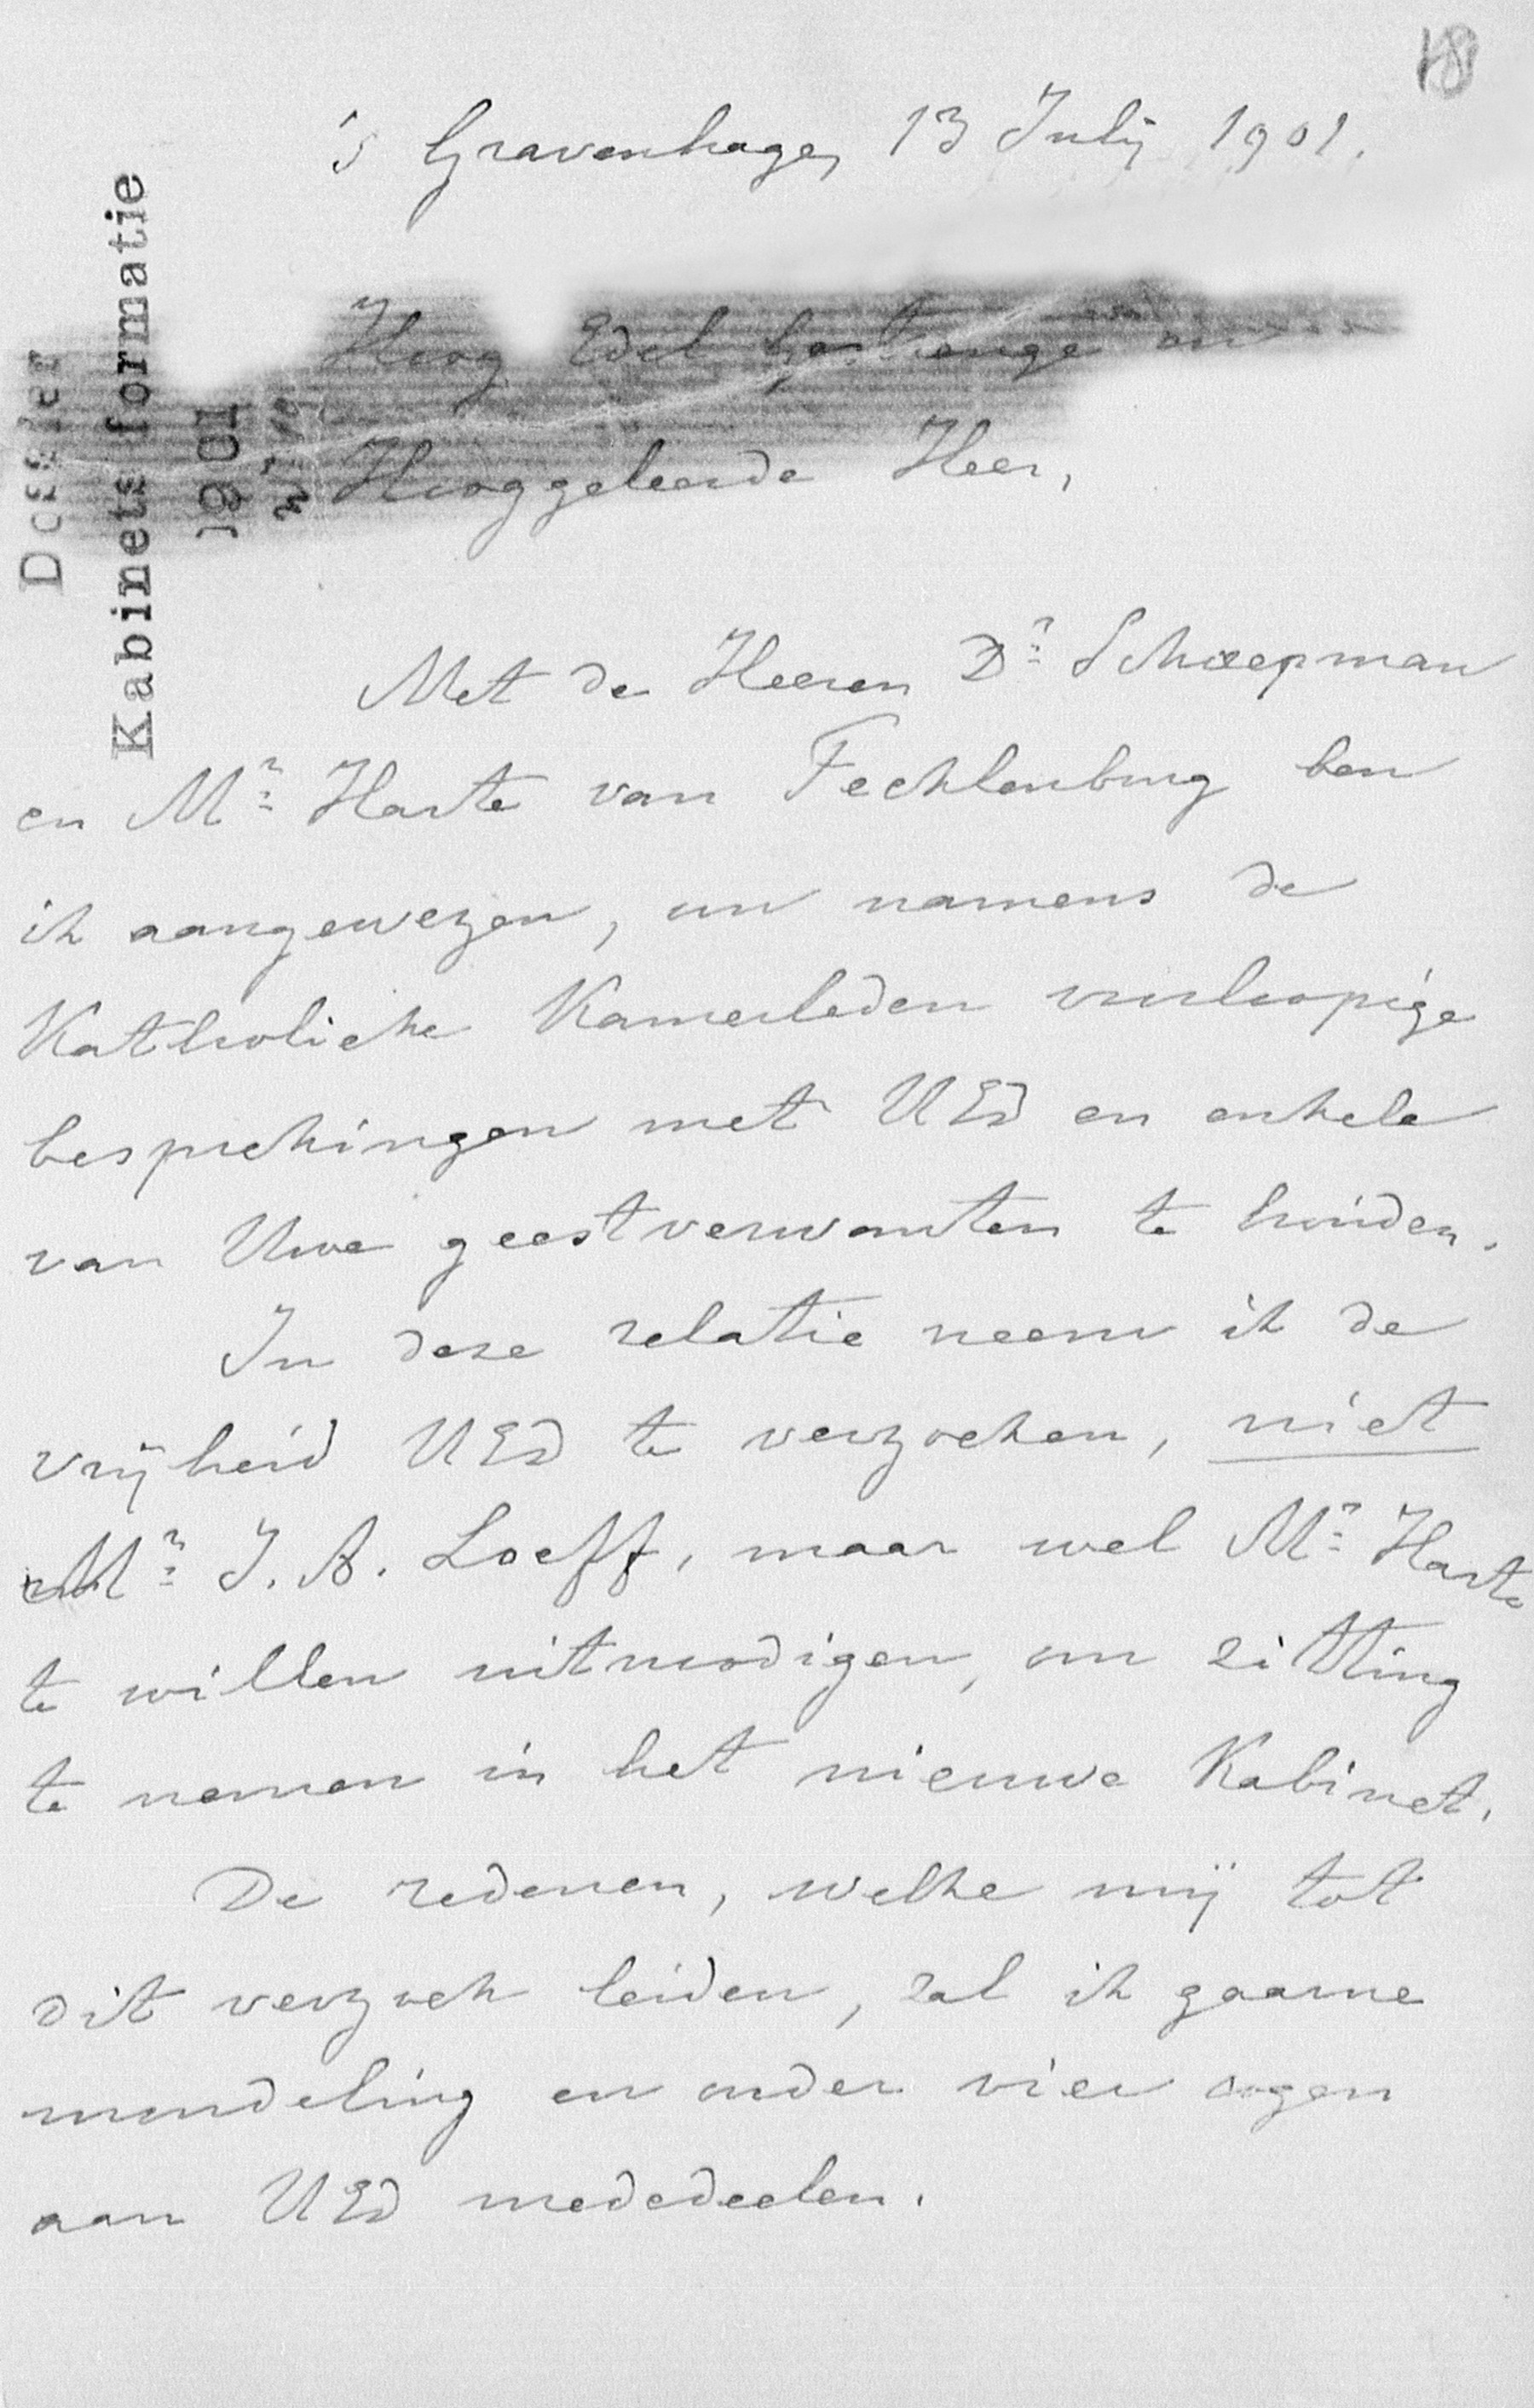 18
's Gravenhage, 13 Julij 1901.
Dossier
Kabinets formatie
1901
Hoog Edel Gestrenge en
Hooggeleerde Heer,
Met de Heeren Dr. Schaepman
en Mr. Harte van Tecklenburg ben
ik aangewezen, om namens de
Katholieke Kamerleden voorloopige
besprekingen met UEd en enkele
van Uwe geestverwanten te houden.
In deze relatie neem ik de
vrijheid UEd te verzoeken, niet
Mr. J. A. Loeff, maar wel Mr. Harte
te willen uitnoodigen, om zitting
te nemen in het nieuwe Kabinet.
De redenen, welke mij tot
dit verzoek leiden, zal ik gaarne
mondeling en onder vier oogen
aan UEd mededeelen.